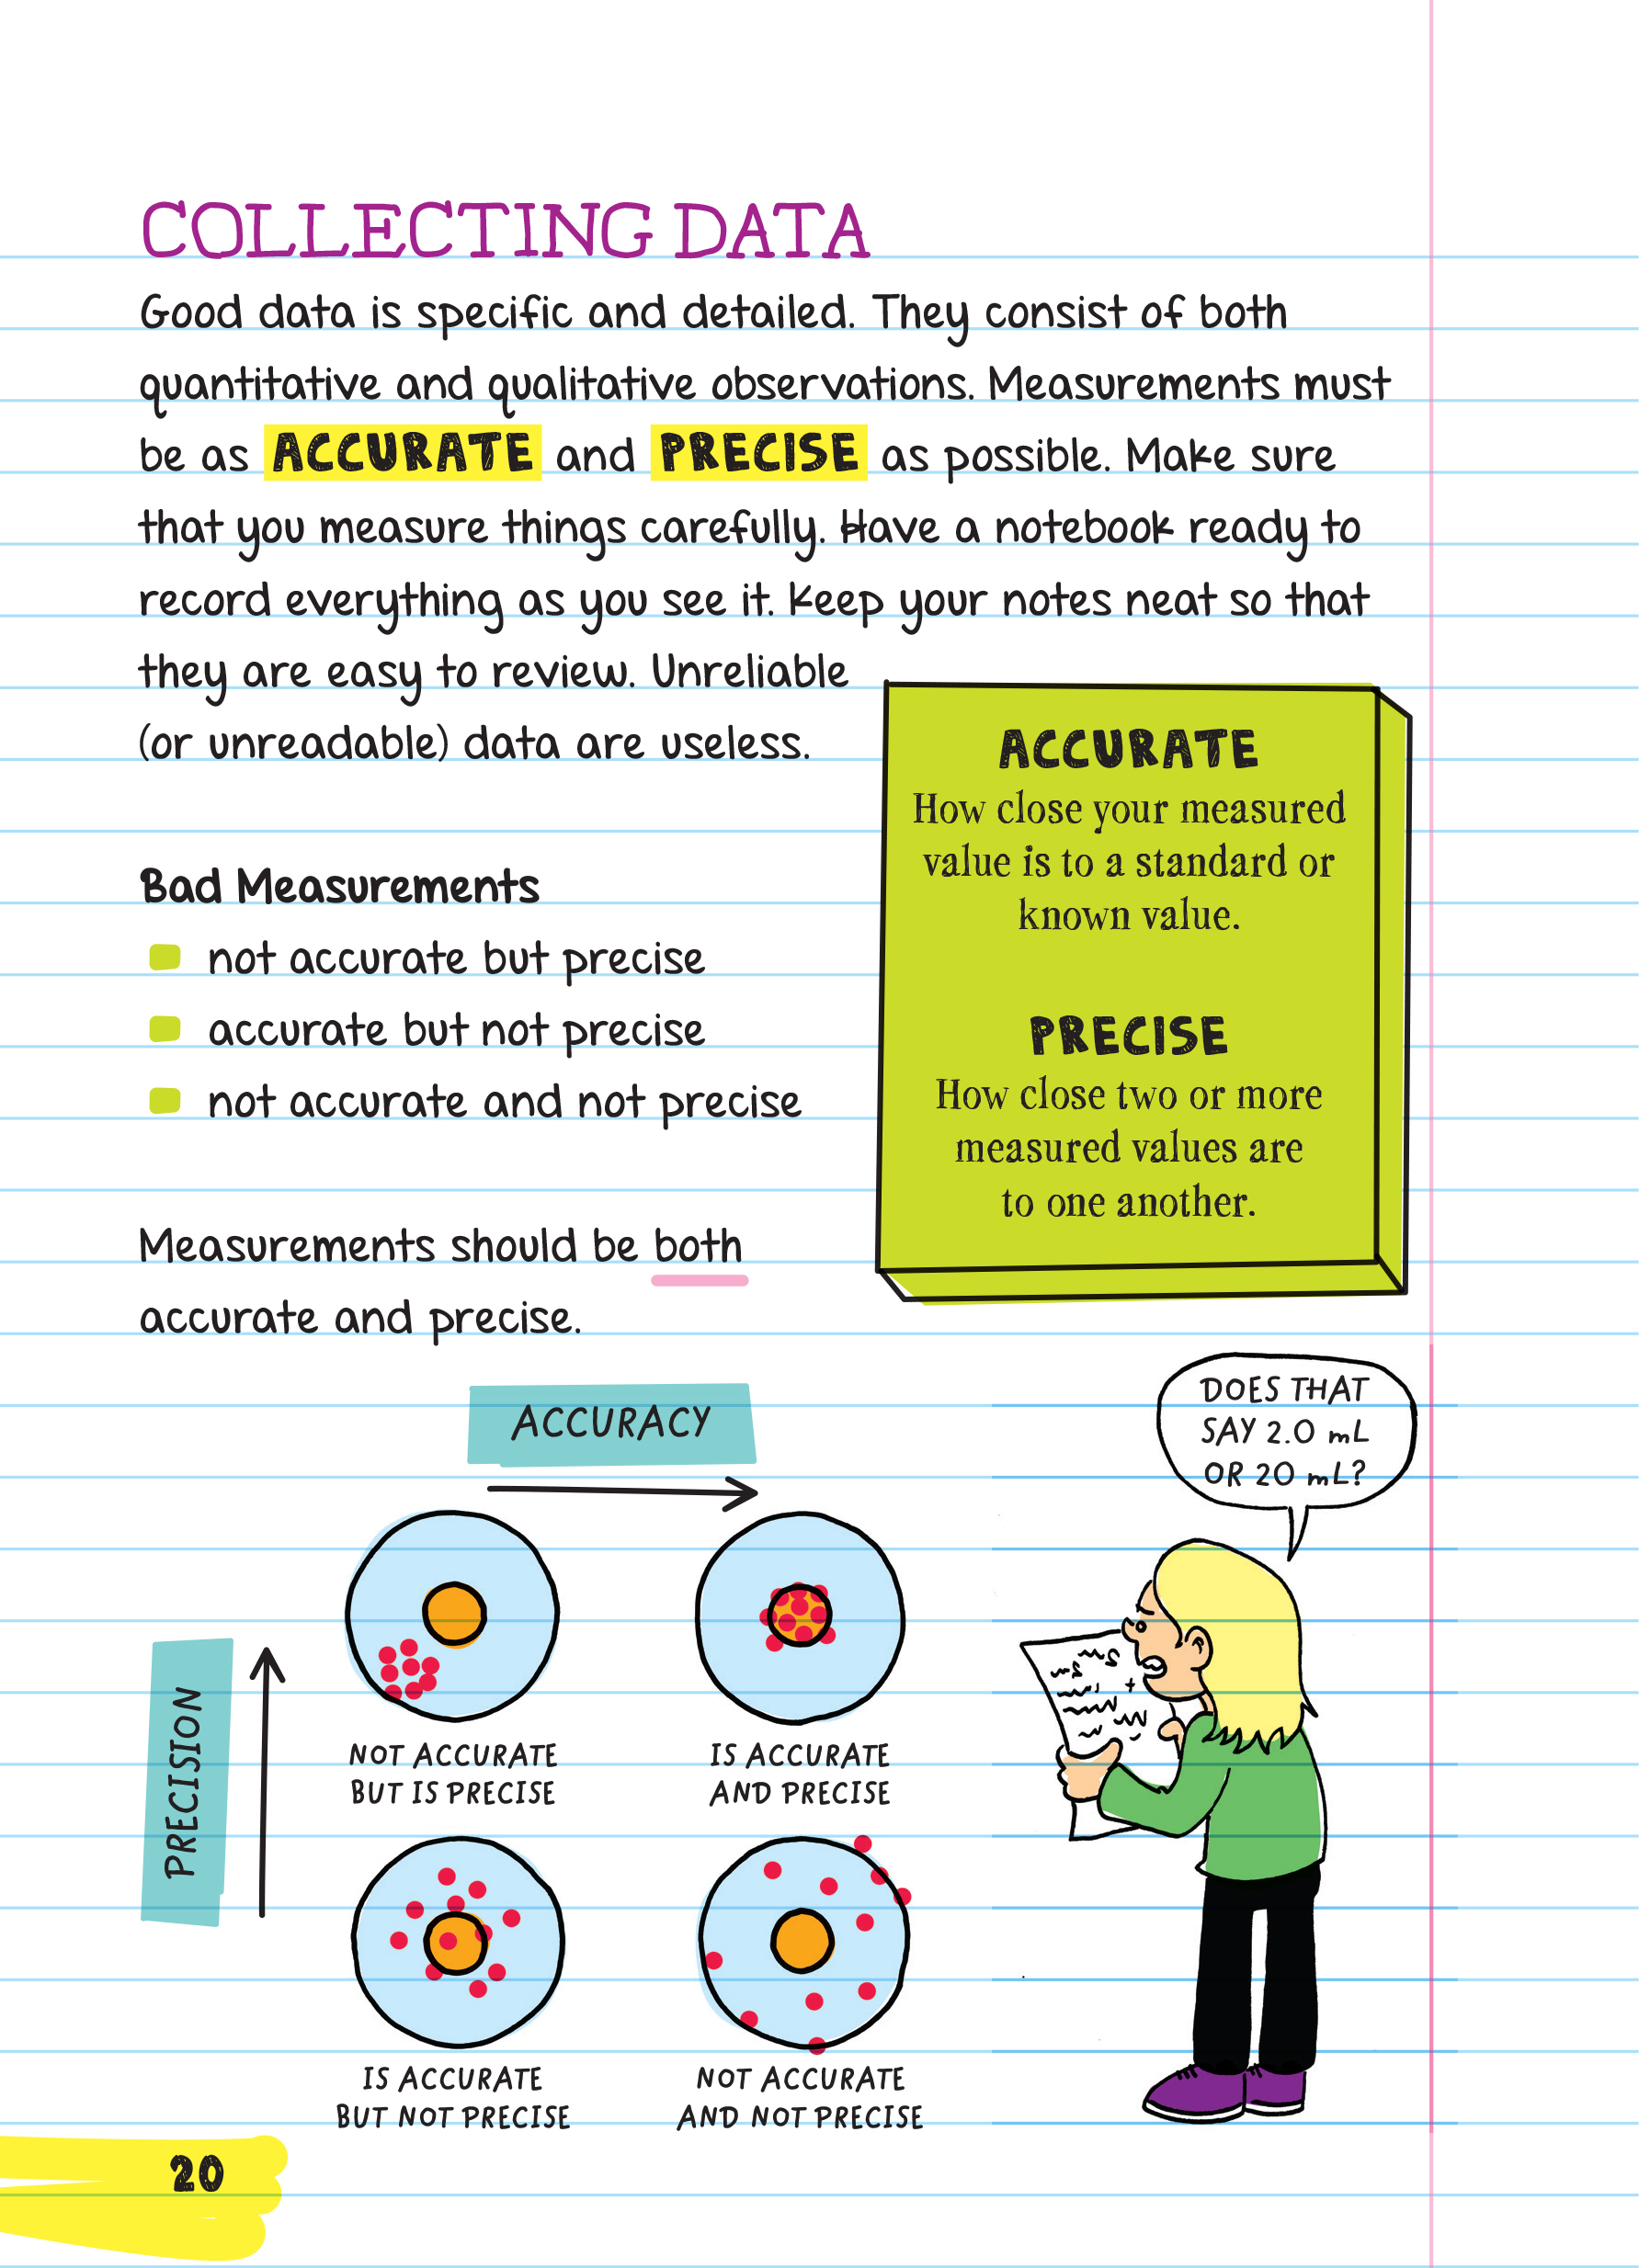 COLLECTING DATA
Good data is specific and detailed. They consist of both
quantitative and qualitative observations. Measurements must
be as ACCURATE and PRECISE as possible. Make sure
that you measure things carefully. Have a notebook ready to
record everything as you see it. Keep your notes neat so that
they are easy to review. Unreliable
(or unreadable) data are useless.
ACCURATE
How close your measured
value is to a standard or
known value.
PRECISE
How close two or more
measured values are
to one another.
Bad Measurements
not accurate but precise
accurate but not precise
not accurate and not precise
Measurements should be both
accurate and precise.
ACCURACY
PRECISION
NOT ACCURATE
BUT IS PRECISE
IS ACCURATE
AND PRECISE
IS ACCURATE
BUT NOT PRECISE
NOT ACCURATE
AND NOT PRECISE
DOES THAT
SAY 2.0 mL
OR 20 mL?
20